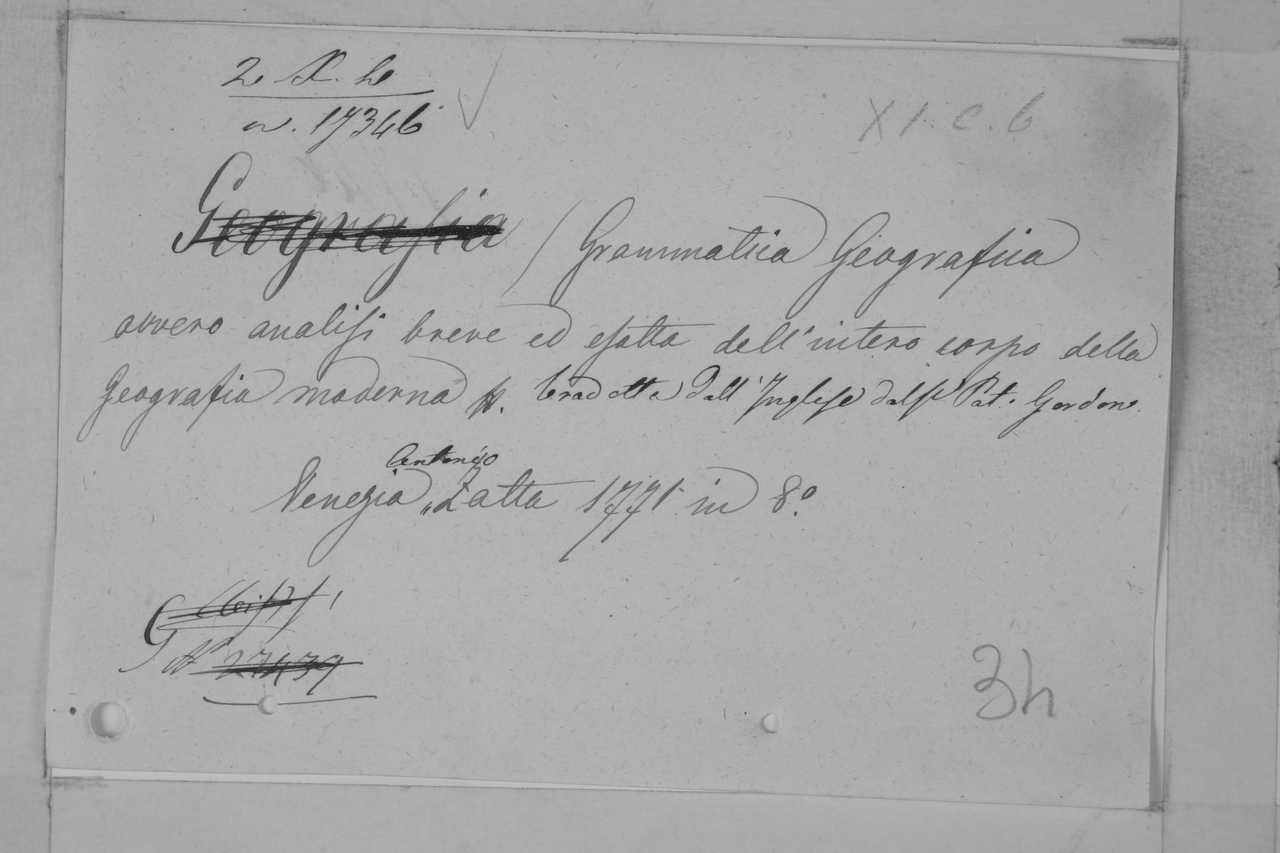 2. X. L.
n. 17346
XI. C. 6
Geografia / Grammatica Geografica
ovvero analisi breve ed esatta dell'intero corpo della
Geografia moderna tradotta dall'Inglese dal Pat. Gordon.
Antonio
Venezia, Zatta 1771 in 8.º
Nº 27439
3h